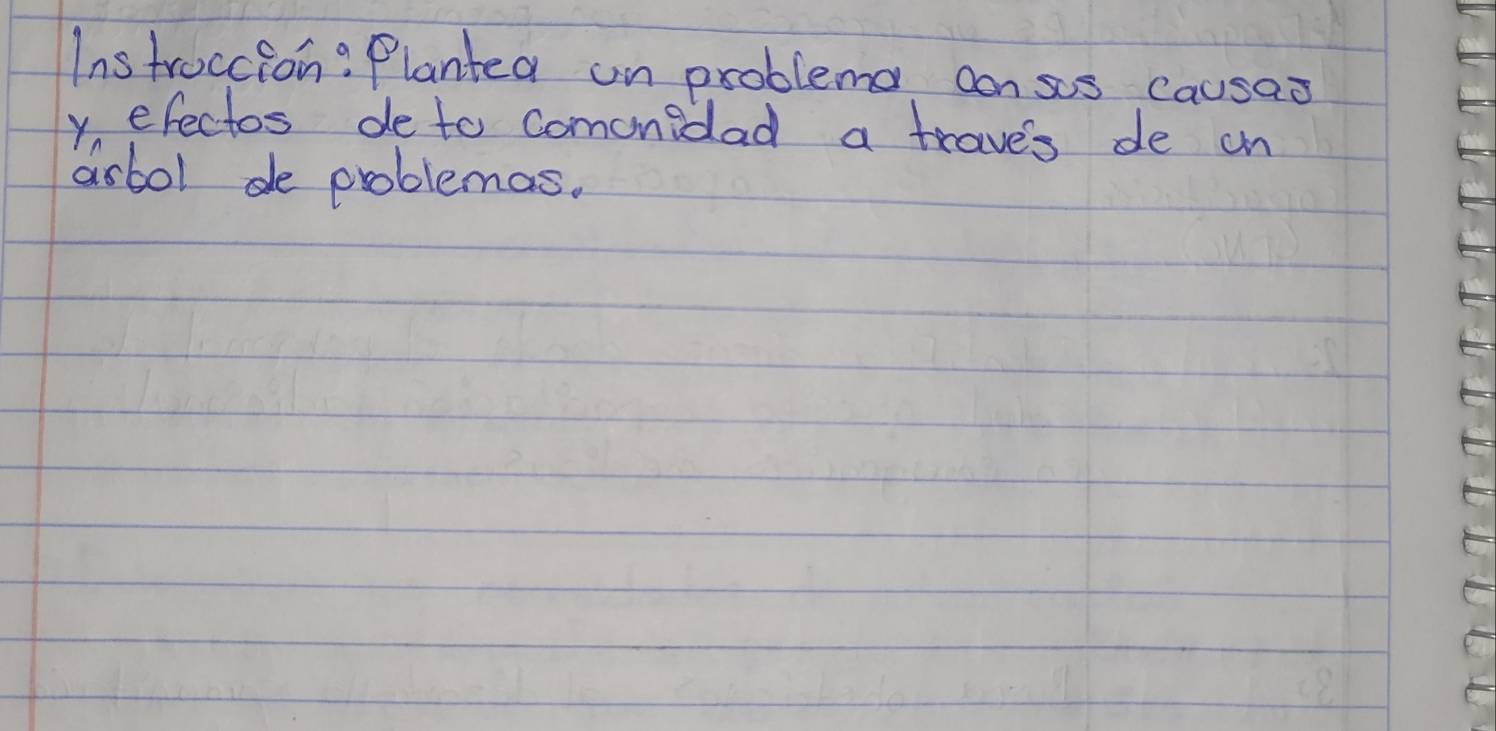 Instrucción: Plantea un problema con sus causas
y efectos de tu comunidad a través de un
árbol de problemas.